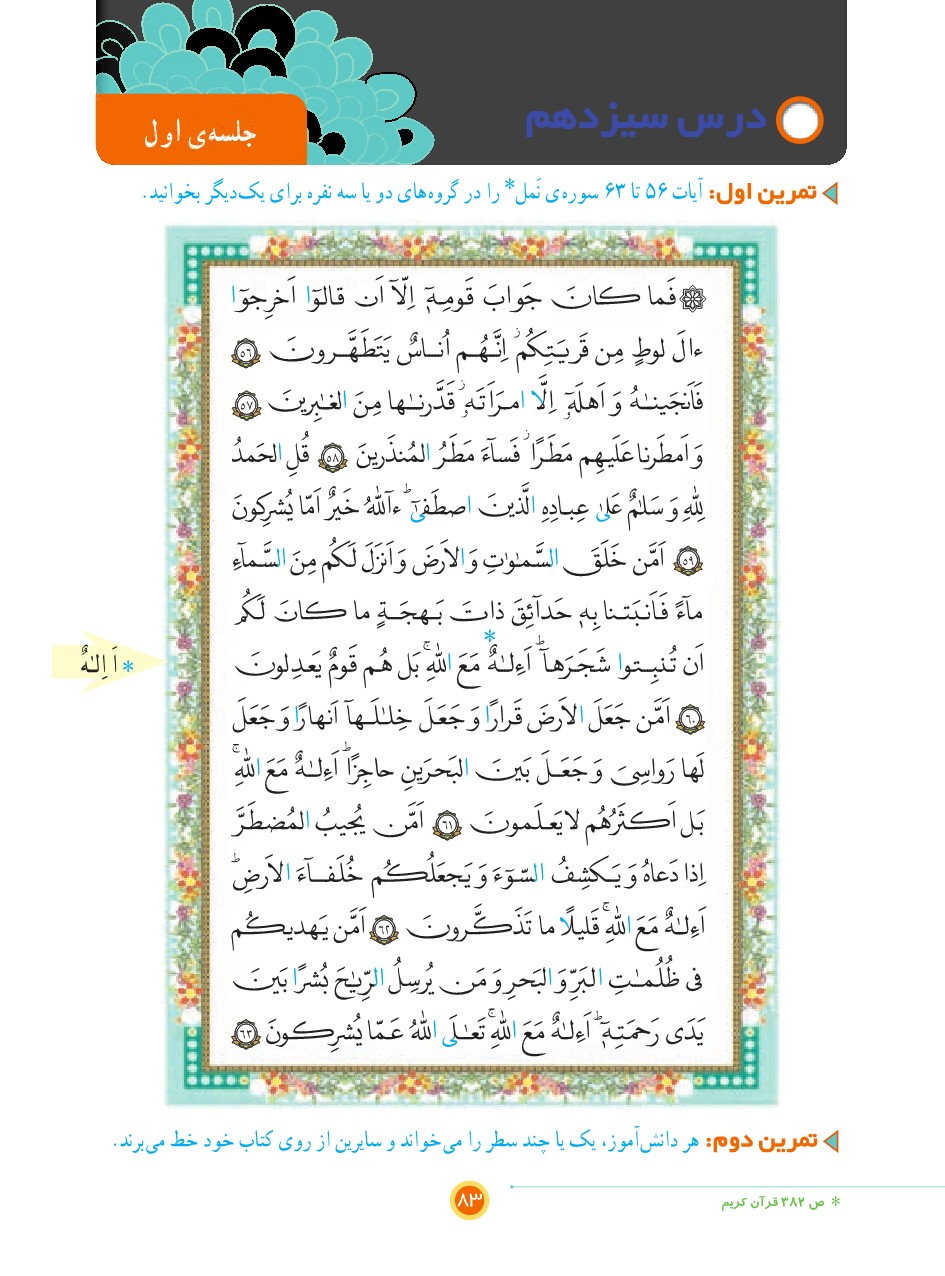 درس سیزدهم
جلسه‌ی اول
تمرین اول: آیات ۵۶ تا ۶۳ سوره‌ی نَمل* را در گروه‌های دو یا سه نفره برای یک‌دیگر بخوانید.
۞ فَما کانَ جَوابَ قَومِهٖٓ اِلّآ اَن قالوٓا اَخرِجوٓا
ءالَ لوطٍ مِن قَریَتِکُم ۖ اِنَّهُم اُناسٌ یَتَطَهَّرونَ ﴿۵۶﴾
فَاَنجَینٰهُ وَ اَهلَهٗٓ اِلَّا امرَاَتَهٗ ۖ قَدَّرنٰها مِنَ الغٰبِرینَ ﴿۵۷﴾
وَ اَمطَرنا عَلَیهِم مَطَرًا ۖ فَسآءَ مَطَرُ المُنذَرینَ ﴿۵۸﴾ قُلِ الحَمدُ
لِلّٰهِ وَ سَلٰمٌ عَلیٰ عِبادِهِ الَّذینَ اصطَفیٰٓ ۗ ءآللّٰهُ خَیرٌ اَمّا یُشرِکونَ
﴿۵۹﴾ اَمَّن خَلَقَ السَّمٰوٰتِ وَ الاَرضَ وَ اَنزَلَ لَکُم مِنَ السَّمآءِ
مآءً فَاَنبَتنا بِهٖ حَدآئِقَ ذاتَ بَهجَةٍ ما کانَ لَکُم
اَن تُنبِتوا شَجَرَهآ ۗ اَءِلٰهٌ* مَعَ اللّٰهِ ۚ بَل هُم قَومٌ یَعدِلونَ
* اَ اِلٰهٌ
﴿۶۰﴾ اَمَّن جَعَلَ الاَرضَ قَرارًا وَ جَعَلَ خِلٰلَهآ اَنهارًا وَ جَعَلَ
لَها رَواسِیَ وَ جَعَلَ بَینَ البَحرَینِ حاجِزًا ۗ اَءِلٰهٌ مَعَ اللّٰهِ ۚ
بَل اَکثَرُهُم لا یَعلَمونَ ﴿۶۱﴾ اَمَّن یُجیبُ المُضطَرَّ
اِذا دَعاهُ وَ یَکشِفُ السّوٓءَ وَ یَجعَلُکُم خُلَفآءَ الاَرضِ ۗ
اَءِلٰهٌ مَعَ اللّٰهِ ۚ قَلیلًا ما تَذَکَّرونَ ﴿۶۲﴾ اَمَّن یَهدیکُم
فی ظُلُمٰتِ البَرِّ وَ البَحرِ وَ مَن یُرسِلُ الرِّیٰحَ بُشرًا بَینَ
یَدَی رَحمَتِهٖٓ ۗ اَءِلٰهٌ مَعَ اللّٰهِ ۚ تَعٰلَی اللّٰهُ عَمّا یُشرِکونَ ﴿۶۳﴾
تمرین دوم: هر دانش‌آموز، یک یا چند سطر را می‌خواند و سایرین از روی کتاب خود خط می‌برند.
* ص ۳۸۲ قرآن کریم
۸۳